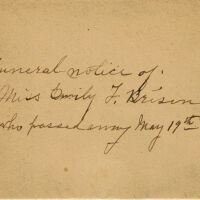 Funeral notice of
Miss Emily F. Brisen
who passed away May 19th